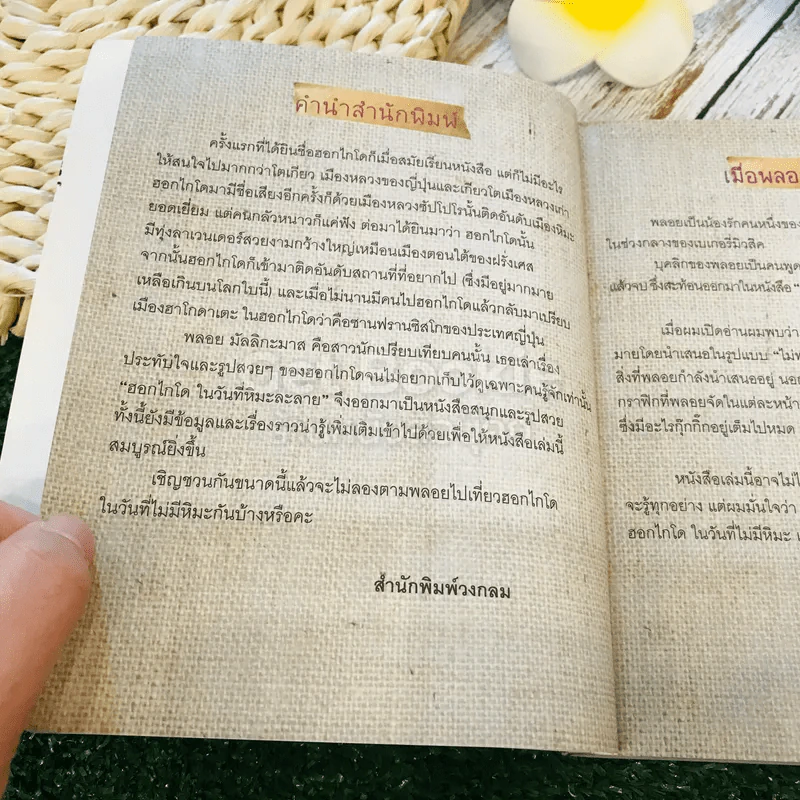 คำนำสำนักพิมพ์
ครั้งแรกที่ได้ยินชื่อฮอกไกโดก็เมื่อสมัยเรียนหนังสือ แต่ก็ไม่มีอะไร
ให้สนใจไปมากกว่าโตเกียว เมืองหลวงของญี่ปุ่นและเกียวโตเมืองหลวงเก่า
ฮอกไกโดมามีชื่อเสียงอีกครั้งก็ด้วยเมืองหลวงซัปโปโรนั้นติดอันดับเมืองหิมะ
ยอดเยี่ยม แต่คนกลัวหนาวก็แค่ฟัง ต่อมาได้ยินมาว่า ฮอกไกโดนั้น
มีทุ่งลาเวนเดอร์สวยงามกว้างใหญ่เหมือนเมืองตอนใต้ของฝรั่งเศส
จากนั้นฮอกไกโดก็เข้ามาติดอันดับสถานที่ที่อยากไป (ซึ่งมีอยู่มากมาย
เหลือเกินบนโลกใบนี้) และเมื่อไม่นานมีคนไปฮอกไกโดแล้วกลับมาเปรียบ
เมืองฮาโกดาเตะ ในฮอกไกโดว่าคือซานฟรานซิสโกของประเทศญี่ปุ่น
พลอย มัลลิกะมาส คือสาวนักเปรียบเทียบคนนั้น เธอเล่าเรื่อง
ประทับใจและรูปสวยๆ ของฮอกไกโดจนไม่อยากเก็บไว้ดูเฉพาะคนรู้จักเท่านั้น
“ฮอกไกโด ในวันที่หิมะละลาย” จึงออกมาเป็นหนังสือสนุกและรูปสวย
ทั้งนี้ยังมีข้อมูลและเรื่องราวน่ารู้เพิ่มเติมเข้าไปด้วยเพื่อให้หนังสือเล่มนี้
สมบูรณ์ยิ่งขึ้น
เชิญชวนกันขนาดนี้แล้วจะไม่ลองตามพลอยไปเที่ยวฮอกไกโด
ในวันที่ไม่มีหิมะกันบ้างหรือคะ
สำนักพิมพ์วงกลม
เมื่อพลอ
พลอยเป็นน้องรักคนหนึ่งของ
ในช่วงกลางของเบเกอรี่มิวสิค
บุคลิกของพลอยเป็นคนพูด
แล้วจบ ซึ่งสะท้อนออกมาในหนังสือ “
เมื่อผมเปิดอ่านผมพบว่า
มายโดยนำเสนอในรูปแบบ “ไม่ท
สิ่งที่พลอยกำลังนำเสนออยู่ นอก
กราฟิกที่พลอยจัดในแต่ละหน้า
ซึ่งมีอะไรกุ๊กกิ๊กอยู่เต็มไปหมด
หนังสือเล่มนี้อาจไม่ใ
จะรู้ทุกอย่าง แต่ผมมั่นใจว่า
ฮอกไกโด ในวันที่ไม่มีหิมะ เ